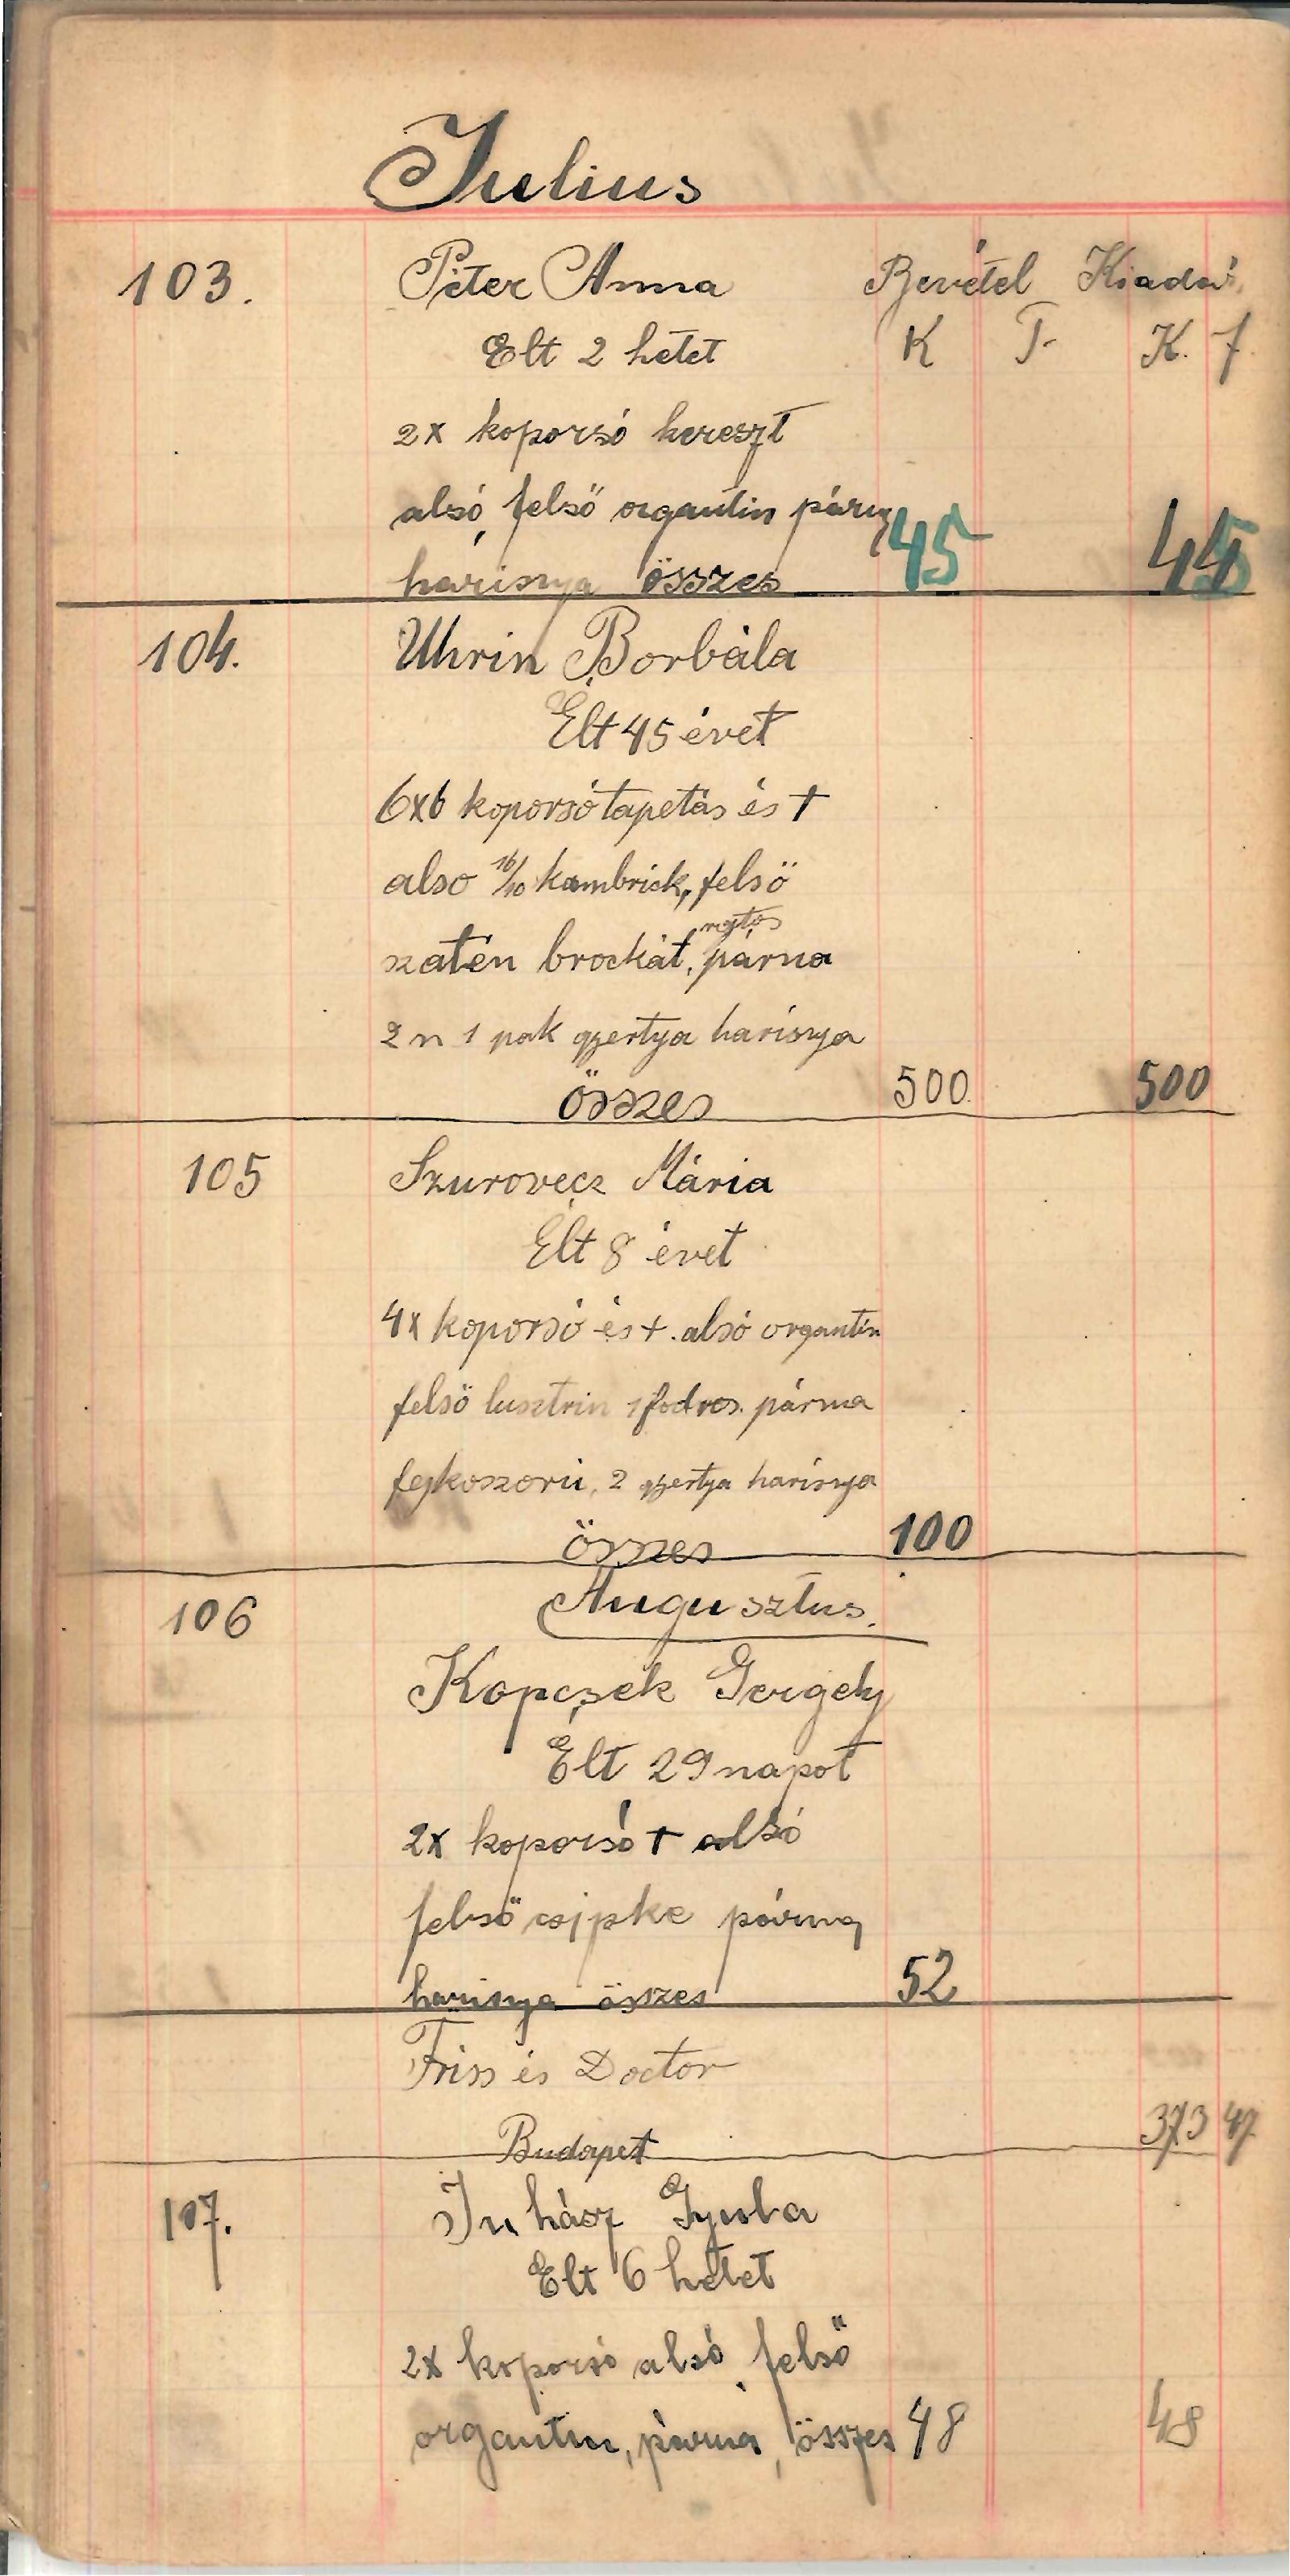 Julius
103. Péter Anna Bevétel Kiadás
Elt 2 hetet K f. K. f.
2x koporsó kereszt
alsó, felső organtin párna
harisnya összes 45 45
104. Uhrin Borbála
Élt 45 évet
6x6 koporsó tapetás és †
also 16/10 kambrick, felsö
szatén brockát, rojtos párna
2 n 1 pak gyertya harisnya
összes 500 500
105 Szurovecz Mária
Élt 8 évet
4x koporsó és +. alsó organtin
felsö lusztrin 1 fodros. párna
fejkoszorú, 2 gyertya harisnya
összes 100
106 Augusztus.
Kopcsek Gergely
Élt 29 napot
2x koporsó † alsó
felső csipke párna
harisnya összes 52
Friss és Doctor
Budapest 373 47
107. Juhász Gyula
Elt 6 hetet
2x koporsó alsó, felső
organtin, párna, összes 48 48